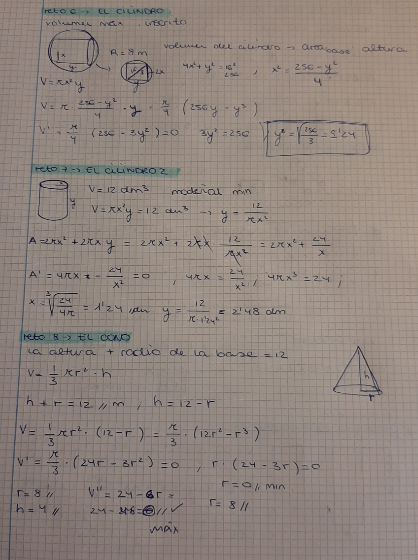 reto 6 → EL CILINDRO
volumen max. inscrito
A = 8 m
volumen del cilindro → area base altura
4x² + y² = 16² 256 , x² = 256 - y² / 4
V = πx²y
V = π · 256 - y² / 4 · y = π/4 (256y - y³)
V' = π/4 (256 - 3y²) = 0 3y² = 256 y² = √256/3 = 9'24
reto 7 → EL CILINDRO 2
V = 12 dm³ material min
y V = πx²y = 12 dm³ → y = 12 / πx²
A = 2πx² + 2πxy = 2πx² + 2πx 12 / πx² = 2πx² + 24/x
A' = 4πx - 24/x² = 0 , 4πx = 24/x² , 4πx³ = 24 ;
x = ³√24/4π = 1'24 dm y = 12 / π·1'24² = 2'48 dm
reto 8 → EL CONO
la altura + radio de la base = 12
V = 1/3 πr² · h
h r
h + r = 12 // m , h = 12 - r
V = 1/3 πr² · (12 - r) = π/3 · (12r² - r³)
V' = π/3 · (24r - 3r²) = 0 , r · (24 - 3r) = 0
r = 0 // min
r = 8 // V'' = 24 - 6r = r = 8 //
h = 4 // 24 - = // ✓
MÁX